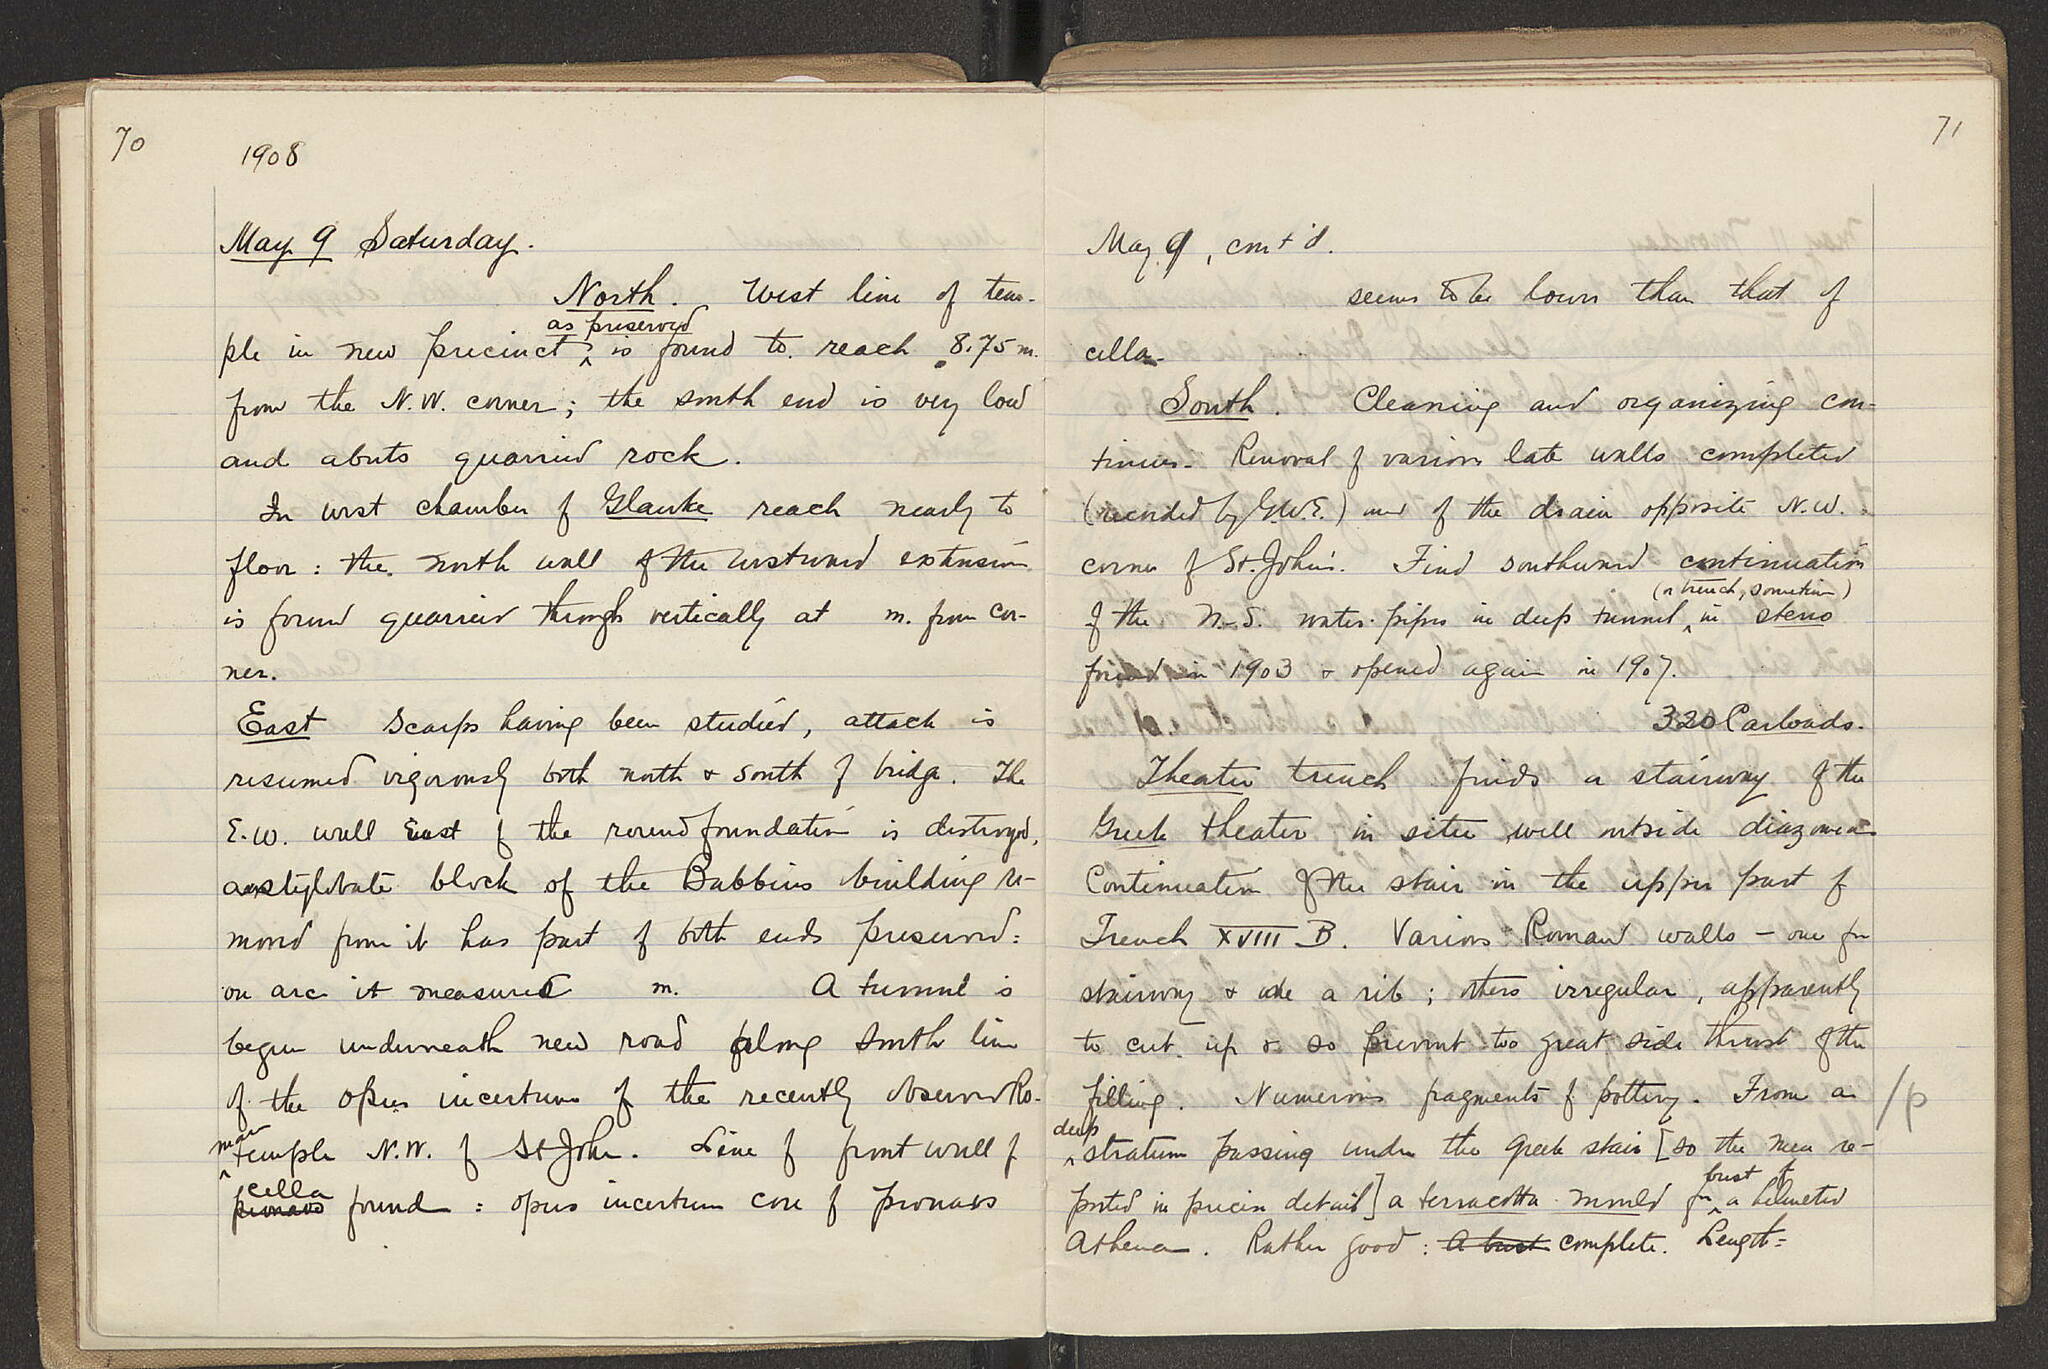 70
1908
May 9 Saturday.
North. West line of tem-
as preserved
ple in new precinct ^ is found to reach 8.75 m.
from the N.W. corner; the south end is very low
and abuts quarried rock.
In west chamber of Glauke reach nearly to
floor: the north wall of the westward extension
is found quarried through vertically at m. from cor-
ner.
East Scarps having been studied, attack is
resumed vigorously both north & south of bridge. The
E.W. wall East of the round foundation is destroyed,
a stylobate block of the Babbius building re-
moved from it has part of both ends preserved:
on arc it measured m. A tunnel is
begun underneath new road along south line
of the opus incertum of the recently observed Ro-
man
^ temple N.W. of St John. Line of front wall of
cella
pronaos found : opus incertum core of pronaos
71
May 9, cont'd.
seems to be lower than that of
cella.
South. Cleaning and organizing con-
tinues. Removal of various late walls completed
(recorded by G.W.E.) and of the drain opposite N.W.
corner of St. John's. Find southward continuation
(or trench, sometimes)
of the N.-S. water-pipes in deep tunnel ^ in steno
found in 1903 & opened again in 1907.
320 Carloads.
Theater trench finds a stairway of the
Greek theater in situ well outside diazoma
Continuation of the stair in the upper part of
Trench XVIII B. Various Roman walls – one for
stairway & a rib; others irregular, apparently
to cut up & so prevent too great side thrust of the
filling. Numerous fragments of pottery. From a /p
deep
^ stratum passing under the Greek stair [so the men re-
bust of
ported in precise detail] a terracotta mould for ^ a helmeted
Athena. Rather good: A bust complete. Length=